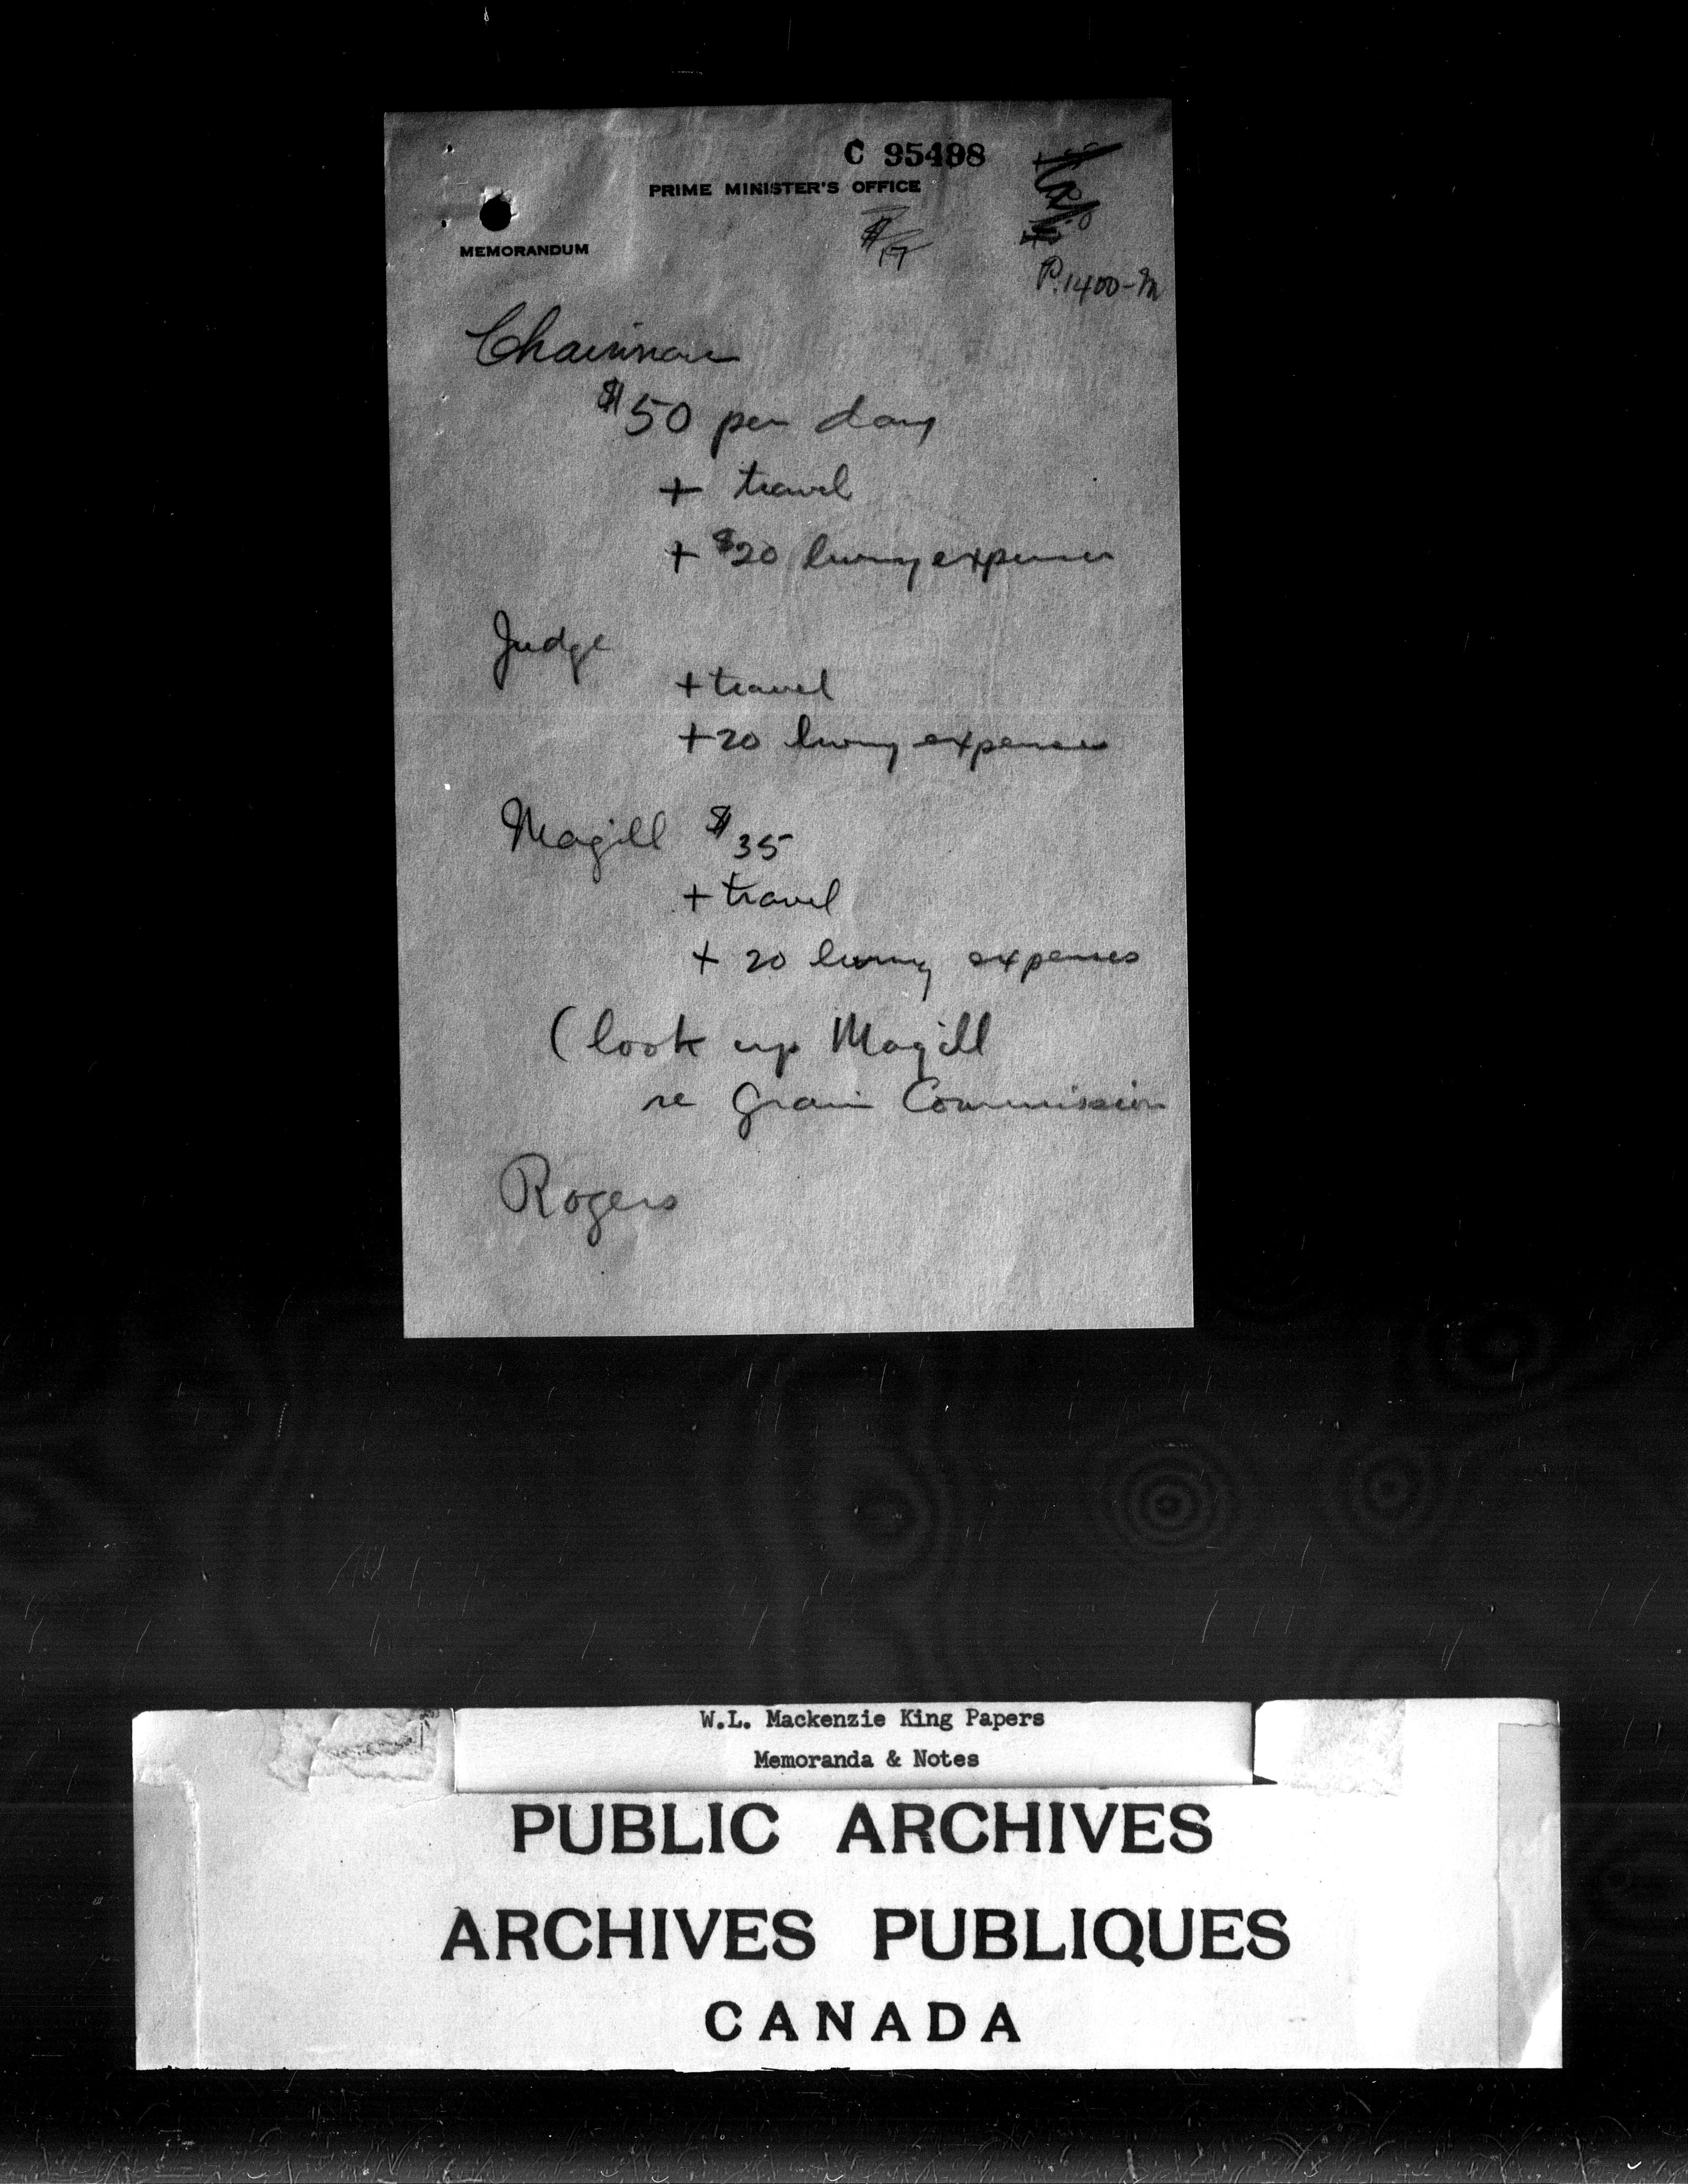 C 95498
PRIME MINISTER'S OFFICE
MEMORANDUM
P.1400-M
Chairman
$50 per day
+ travel
+ $20 living expenses
Judge
+ travel
+ 20 living expenses
Magill $35
+ travel
+ 20 living expenses
(look up Magill
re Grain Commission
Rogers
W.L. Mackenzie King Papers
Memoranda & Notes
PUBLIC ARCHIVES
ARCHIVES PUBLIQUES
CANADA